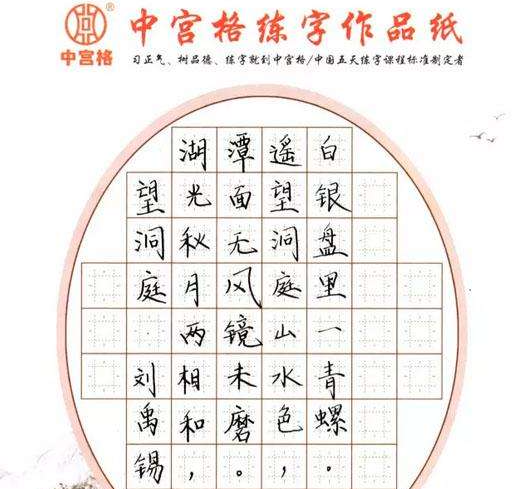 ®
中宫格
中宫格练字作品纸
习正气、树品德、练字就到中宫格/中国五天练字课程标准制定者
望洞庭 刘禹锡
湖光秋月两相和，
潭面无风镜未磨。
遥望洞庭山水色，
白银盘里一青螺。